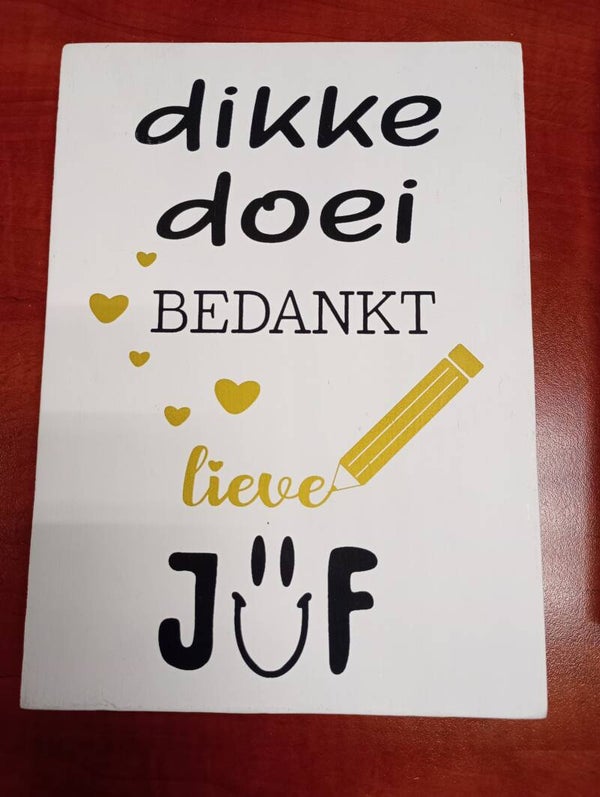 dikke
doei
BEDANKT
lieve
JUF